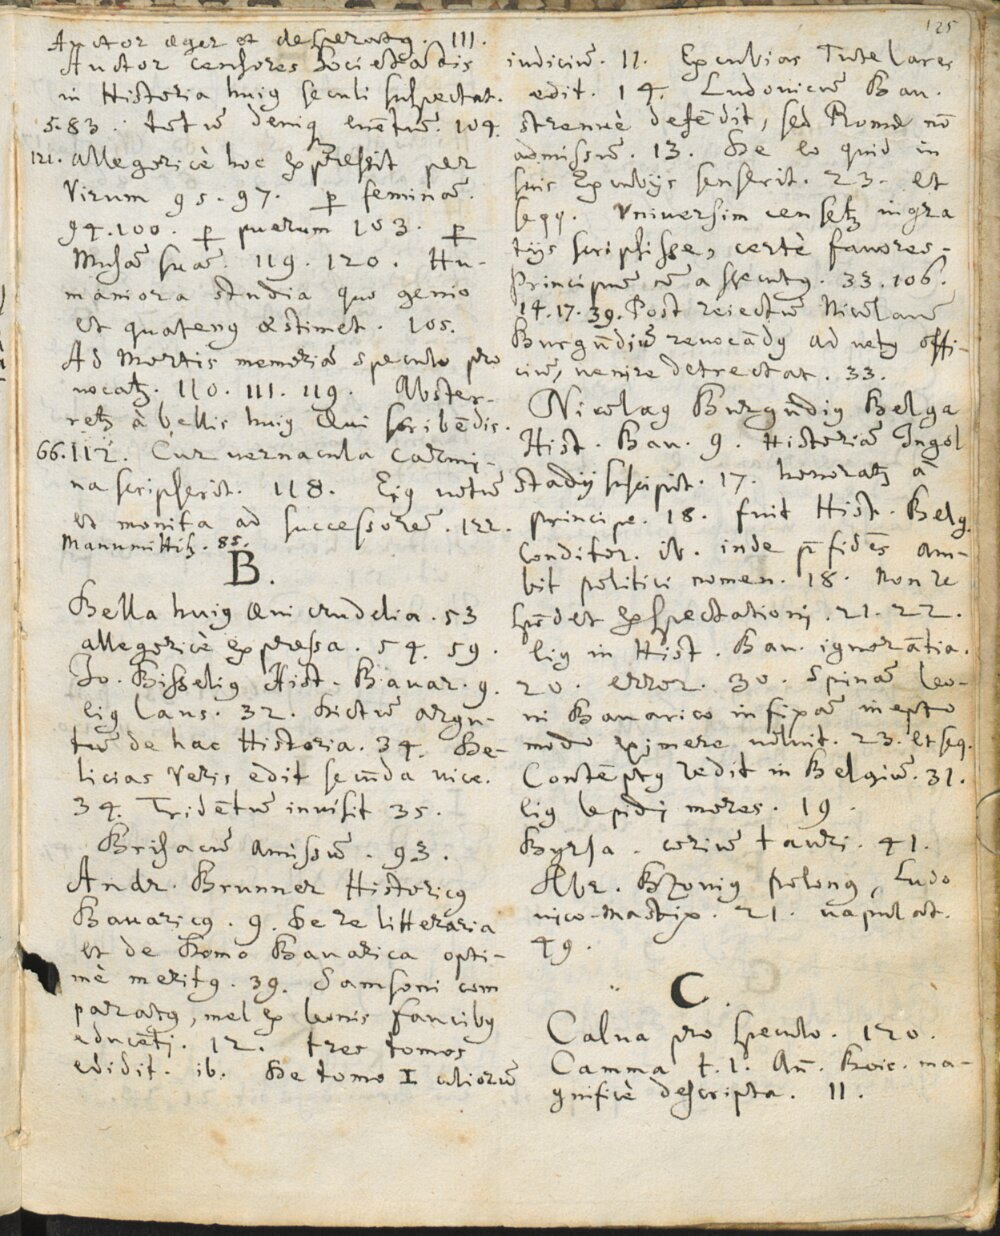 125
Auctor æger et desperatꝯ. 111.
Auctor censores Societatis
in Historia huiꝯ seculi suspectat.
5.83. totū deniq euētū. 104.
121. allegoricè hoc expressit per
Virum 95.97. ꝑ feminā.
94.100. ꝑ puerum 103. ꝑ
Musā suā. 119.120. Hu-
maniora studia quo genio
et quatenꝯ æstimet. 105.
Ad Mortis memoriā speculo pro
uocatꝫ. 110.111.119. Abster-
retꝫ à bellis huiꝯ æui scribēdis.
66.112. Cur vernacula carmi-
na scripserit. 118. Eiꝯ uotū
et monita ad successorē. 122.
Manumittitꝫ. 85.
B.
Bella huiꝯ æui crudelia. 53
allegoricè expressa. 54. 59.
Jo. Bisseliꝯ Hist. Bauar. 9.
eiꝯ laus. 32. Dictū argu-
tū de hac Historia. 34. De-
licias Veris edit secūda uice.
34. Tridētū inuisit 35.
Brisacū amissū. 93.
Andr. Brunner Historicꝯ
Bauaricꝯ. 9. De re litteraria
et de Domo Bauarica opti-
mè meritꝯ. 39. Samsoni com
paratꝯ, mel ex leonis faucibꝯ
educēti. 12. tres tomos
edidit. ib. De tomo I aliorū
iudiciū. 11. Excubias Tutelares
edit. 14. Ludouicū Bau.
strenuè defēdit, sed Romæ nō
admissū. 13. De eo quid in
suis Excubijs senserit. 23. et
seqq. Vniuersim censetꝫ ingra
tijs scripsisse, certè fauores
Principū nō assecutꝯ. 33.106.
14.17.39. Post reiectū Nicolaū
Burgūdiū reuocādꝯ ad uetꝯ offi-
ciū, uenire detrectat. 33.
Nicolaꝯ Burgūdiꝯ Belga
Hist. Bau. 9. Historiā Ingol
stadij suscipit. 17. honoratꝫ à
principe. 18. fuit Hist. Belg.
Conditor. ib. inde p̄fidēs am-
bit politici nomen. 18. Non re
spōdet exspectationi. 21.22.
eiꝯ in Hist. Bau. ignorātia.
20. error. 30. Spinā leo-
ni Bauarico infixā inepto
modo eximere uoluit. 23. et seq.
Contēptꝯ redit in Belgiū. 31.
eiꝯ lepidi mores. 19.
Byrsa. coriū tauri. 41.
Abr. Bzouiꝯ polonꝯ, Ludo
uico-mastix. 21. uapulat.
49.
C.
Calua pro speculo. 120.
Camma t.1. Añ. Boic. ma-
gnificè descripta. 11.